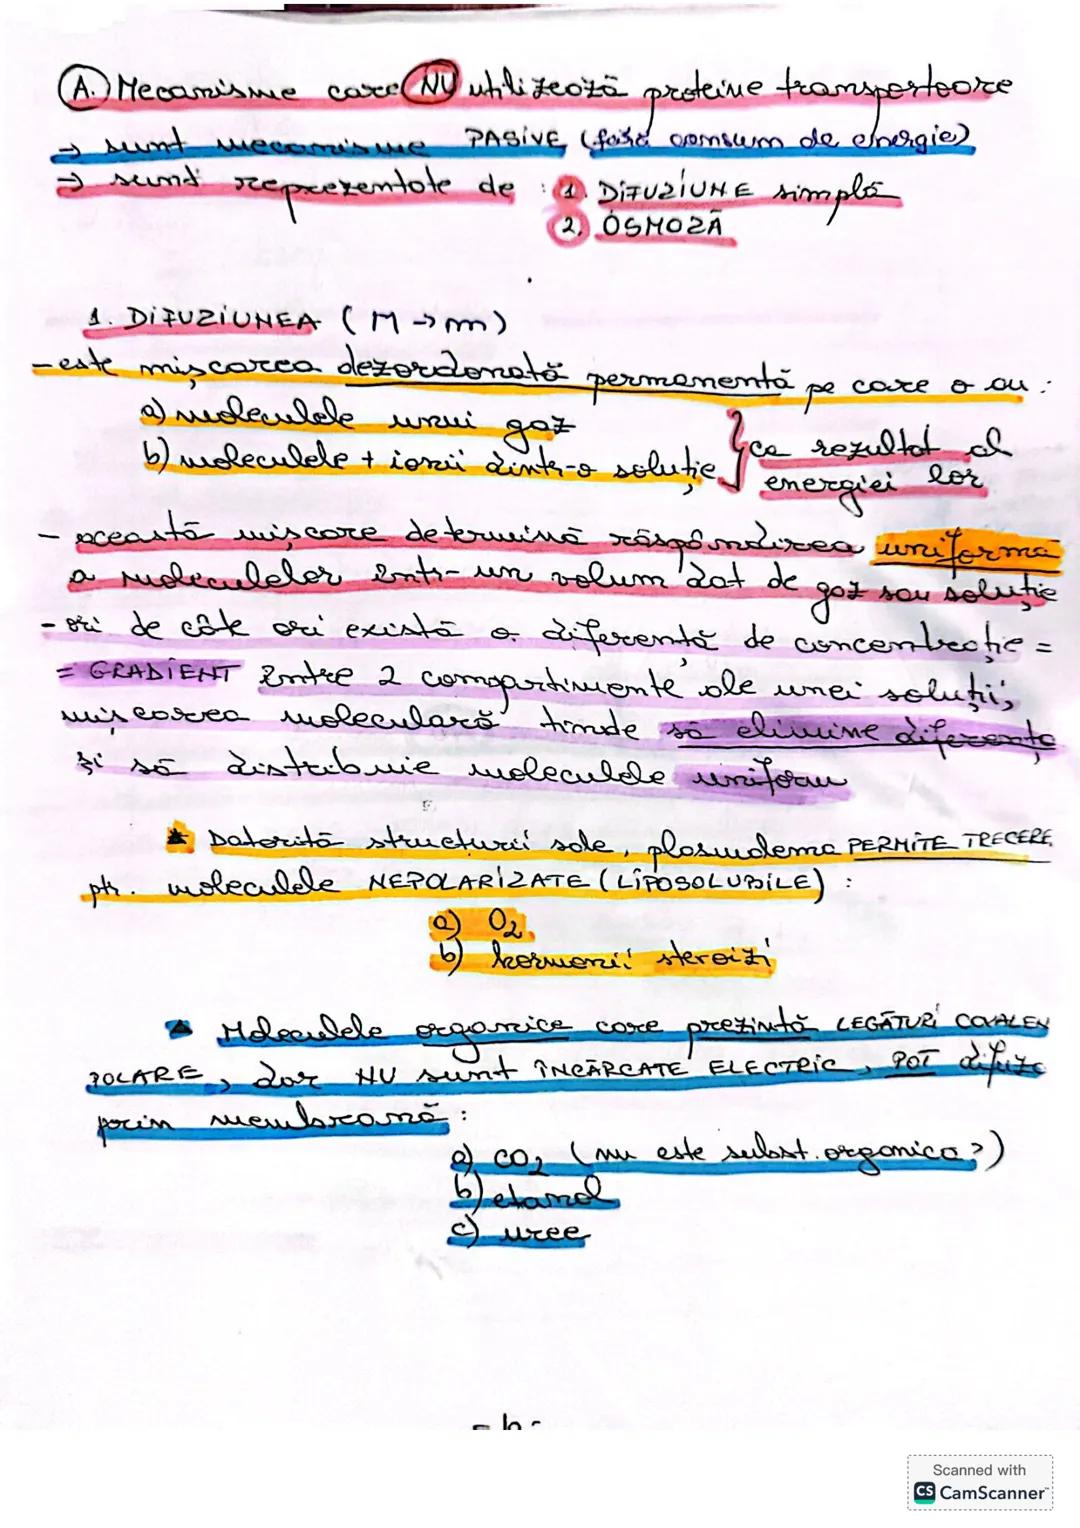 A. Mecanisme care NU utilizează proteine transportoare
→ sunt mecanisme PASIVE (fără consum de energie)
→ sunt reprezentate de : 1. DIFUZIUNE simplă
2. OSMOZĂ
1. DIFUZIUNEA (M → m)
- este mișcarea dezordonată permanentă pe care o au :
a) moleculele unui gaz
b) moleculele + ionii dintr-o soluție } ca rezultat al
energiei lor
- această mișcare determină răspândirea uniformă
a moleculelor într-un volum dat de gaz sau soluție
- ori de câte ori există o diferență de concentrație =
= GRADIENT între 2 compartimente ale unei soluții,
mișcarea moleculară tinde să elimine diferența
și să distribuie moleculele uniform
Datorită structurii sale, plasmalema PERMITE TRECERE
ptr. moleculele NEPOLARIZATE (LIPOSOLUBILE) :
a) O2
b) hormonii steroizi
Moleculele organice care prezintă LEGĂTURI COVALEN
POLARE, dar NU sunt ÎNCĂRCATE ELECTRIC, POT difuza
prin membrană :
a) CO2 (nu este subst. organica?)
b) etanol
c) uree
Scanned with
CS CamScanner